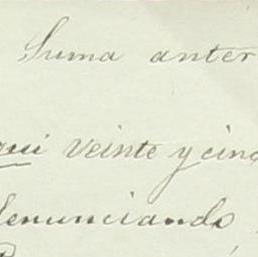 Suma anter
qui veinte y cinc
denunciando